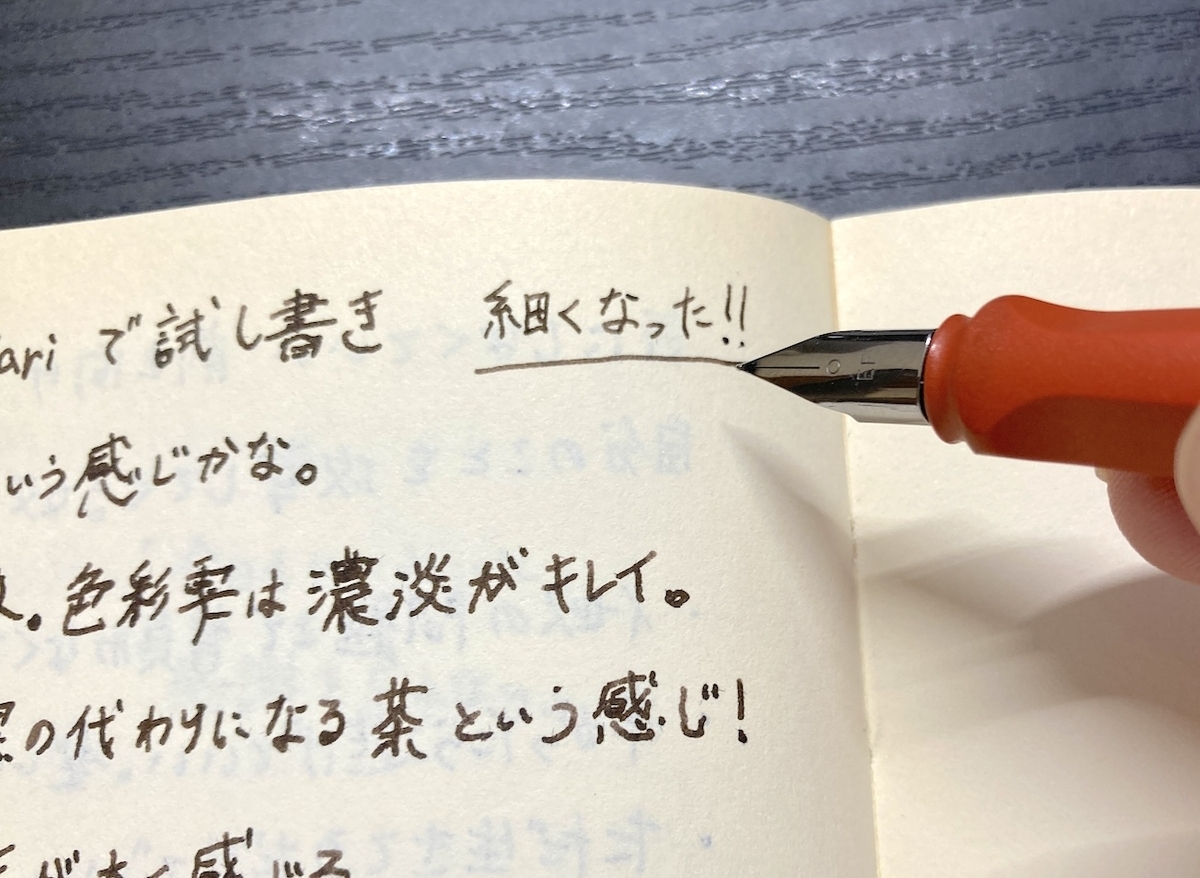 ari で試し書き 細くなった!!
EF
いう感じかな。
。色彩雫は濃淡がキレイ。
の代わりになる茶という感じ!
感じる